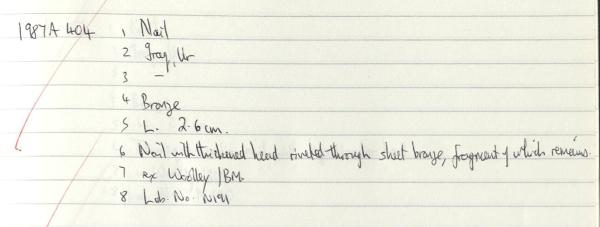 1987A 404 1 Nail
2 Iraq, Ur
3 —
4 Bronze
5 L. 2.6cm.
6 Nail with thickened head riveted through sheet bronze, fragment of which remains.
7 ex Woolley / BM.
8 Lab. No. N191